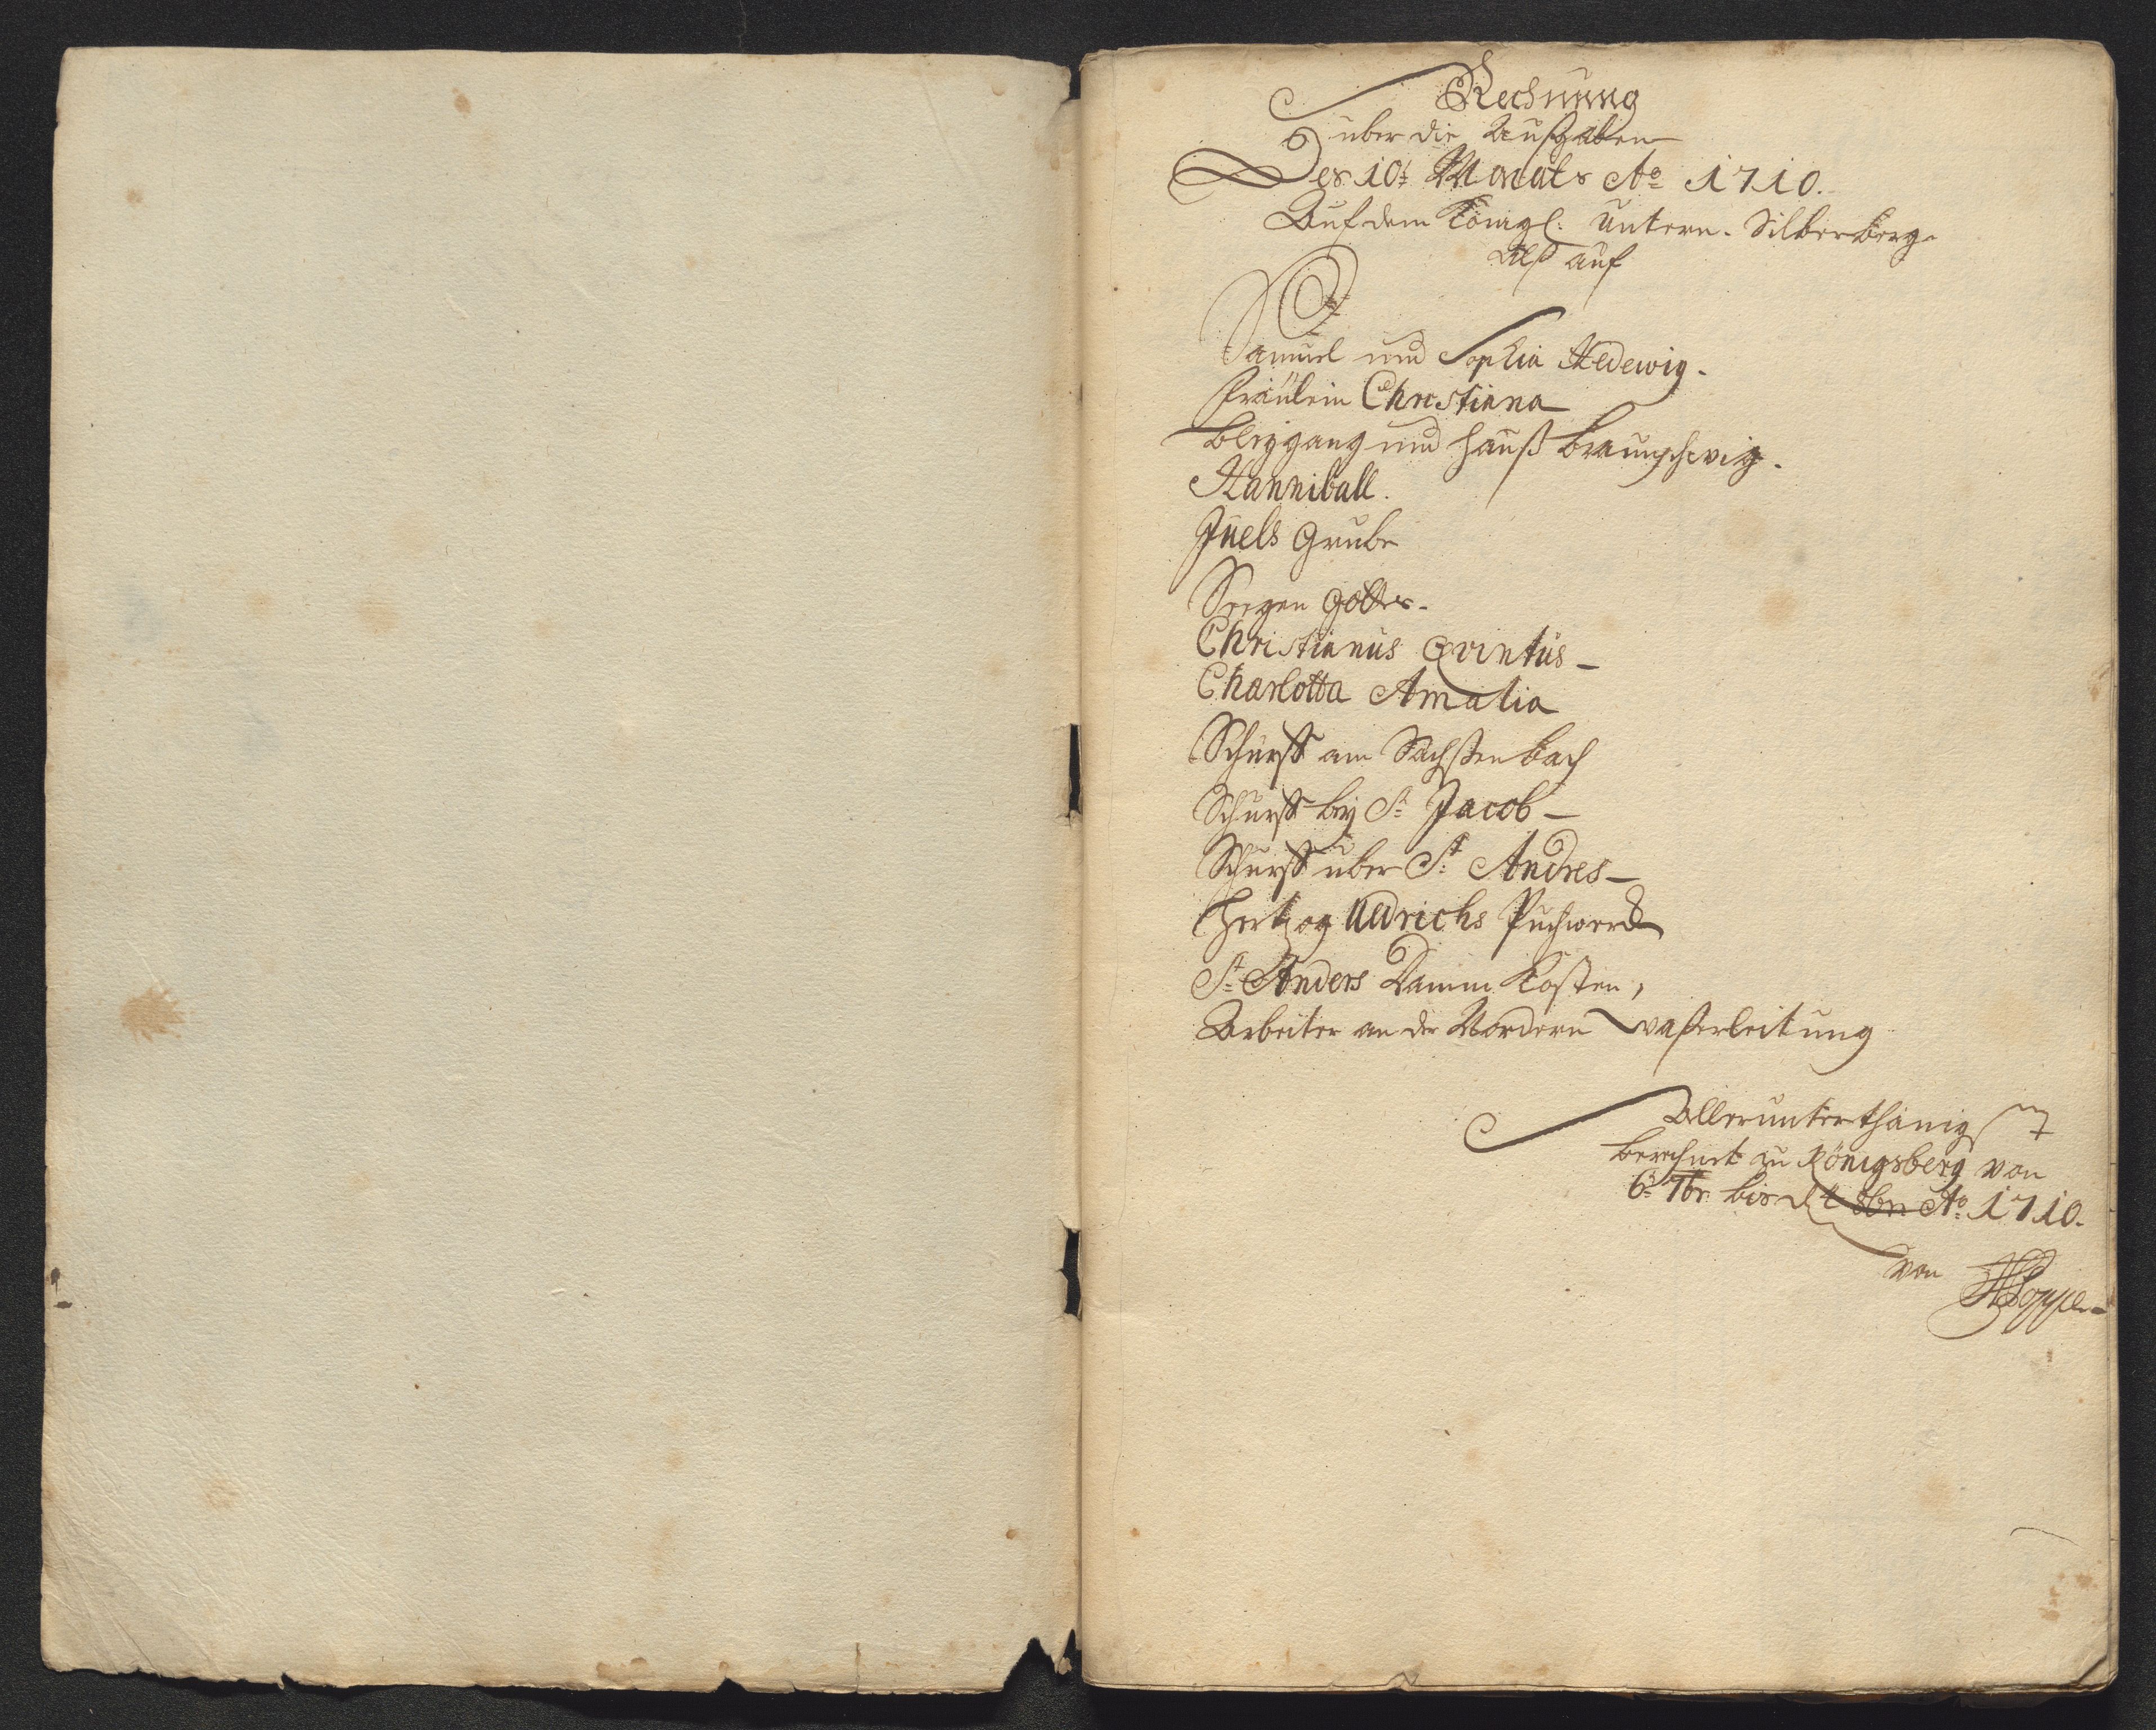 Rechnung
über die Außgaben
Des 10t Monats Ao 1710.
Auf dem Königl: Untern-Silberberge
Alß auf
Samuel und Sophia Hedewig.
Fräulein Christiana
Bleygang und Hauß Braunschwig.
Hanniball.
Juels Grube
Seegen Gottes.
Christianus Qvintus
Charlotta Amalia
Schurff am Sachßen bach
Schurff bey St Jacob
Schurff über St Andres
Hertzog Uldrichs Puchwerck
St Anders Damm Kosten,
Arbeiter an der Vordern Waßerleitung
Allerunterthänigst
berechnet zu Königsberg von
6t 7br: bis d 4t 8br: Ao 1710.
von